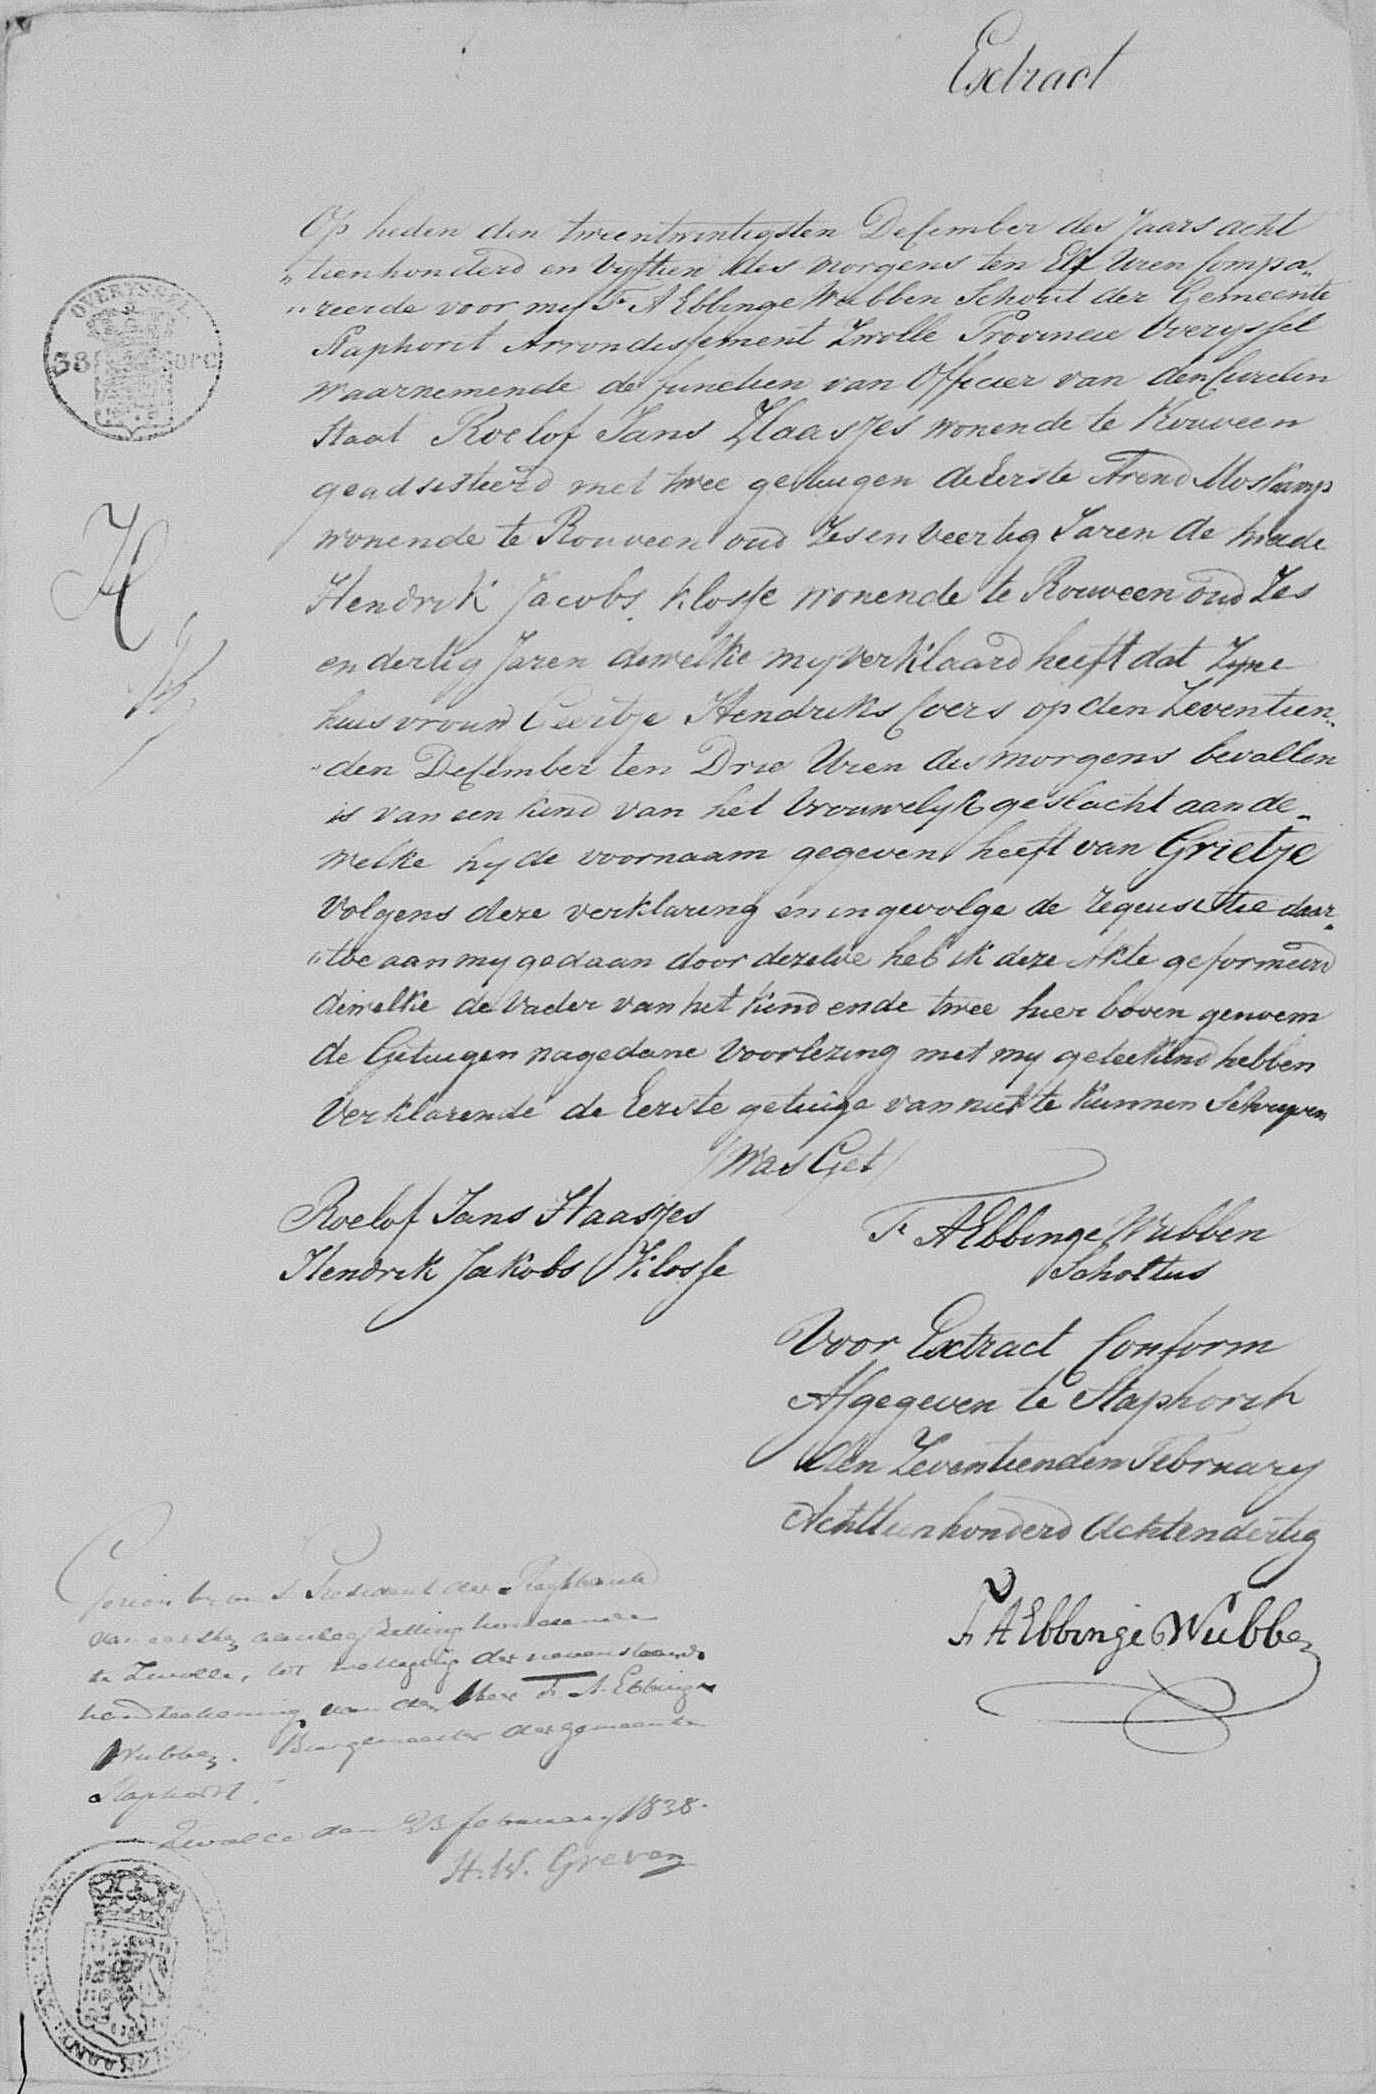 Extract
Op heden den tweentwintigsten December des Jaars acht
"tienhonderd en Vyftien des morgens ten Elf Uren Compa„
"reerde voor my Fr A Ebbinge Wubben Schout der Gemeente
Staphorst Arrondissement Zwolle Provincie Overyssel
waarnemende de functien van Officier van den Civielen
Staat Roelof Jans Haasjes wonende te Rouveen
geadsisteerd met twee getuigen de Eerste Arend Moskamp
wonende te Rouveen oud Zes en Veertig Jaren de twede
Hendrik Jacobs Klosse wonende te Rouveen oud Zes
en dertig Jaren dewelke my verklaard heeft dat Zyne
huisvrouw Geertje Hendriks Coers op den Zeventien„
"den December ten Drie Uren des morgens bevallen
is van een kind van het Vrouwelyk geslacht aan de„
welke hy de voornaam gegeven heeft van Grietje
Volgens deze verklaring en in gevolge de requisitie daar„
"toe aan my gedaan door dezelve heb ik deze Akte geformeerd
dewelke de Vader van het kind en de twee hier boven genoem
de Getuigen na gedane Voorlezing met my geteekend hebben
Verklarende de Eerste getuige van niet te kunnen Schryven
/Was Get/
Roelof Jans Haasjes
Fr AEbbinge Wubben
Hendrik Jakobs Klosse
Scholtus
Voor Extract Conform
Afgegeven te Staphorst
den Zeventienden February
Achttienhonderd Achtendertig
Fr AEbbinge Wubben
Gezien by ons President der Regtbank
van eersten aanleg zitting houdende
te Zwolle, tot der nevenstaande
handteekening van den Heer Fr. A. Ebbinge
Wubben. Burgemeester der gemeente
Staphorst.
Zwolle den 23 february 1838.
H. W. Greven
OVERYSSEL
38